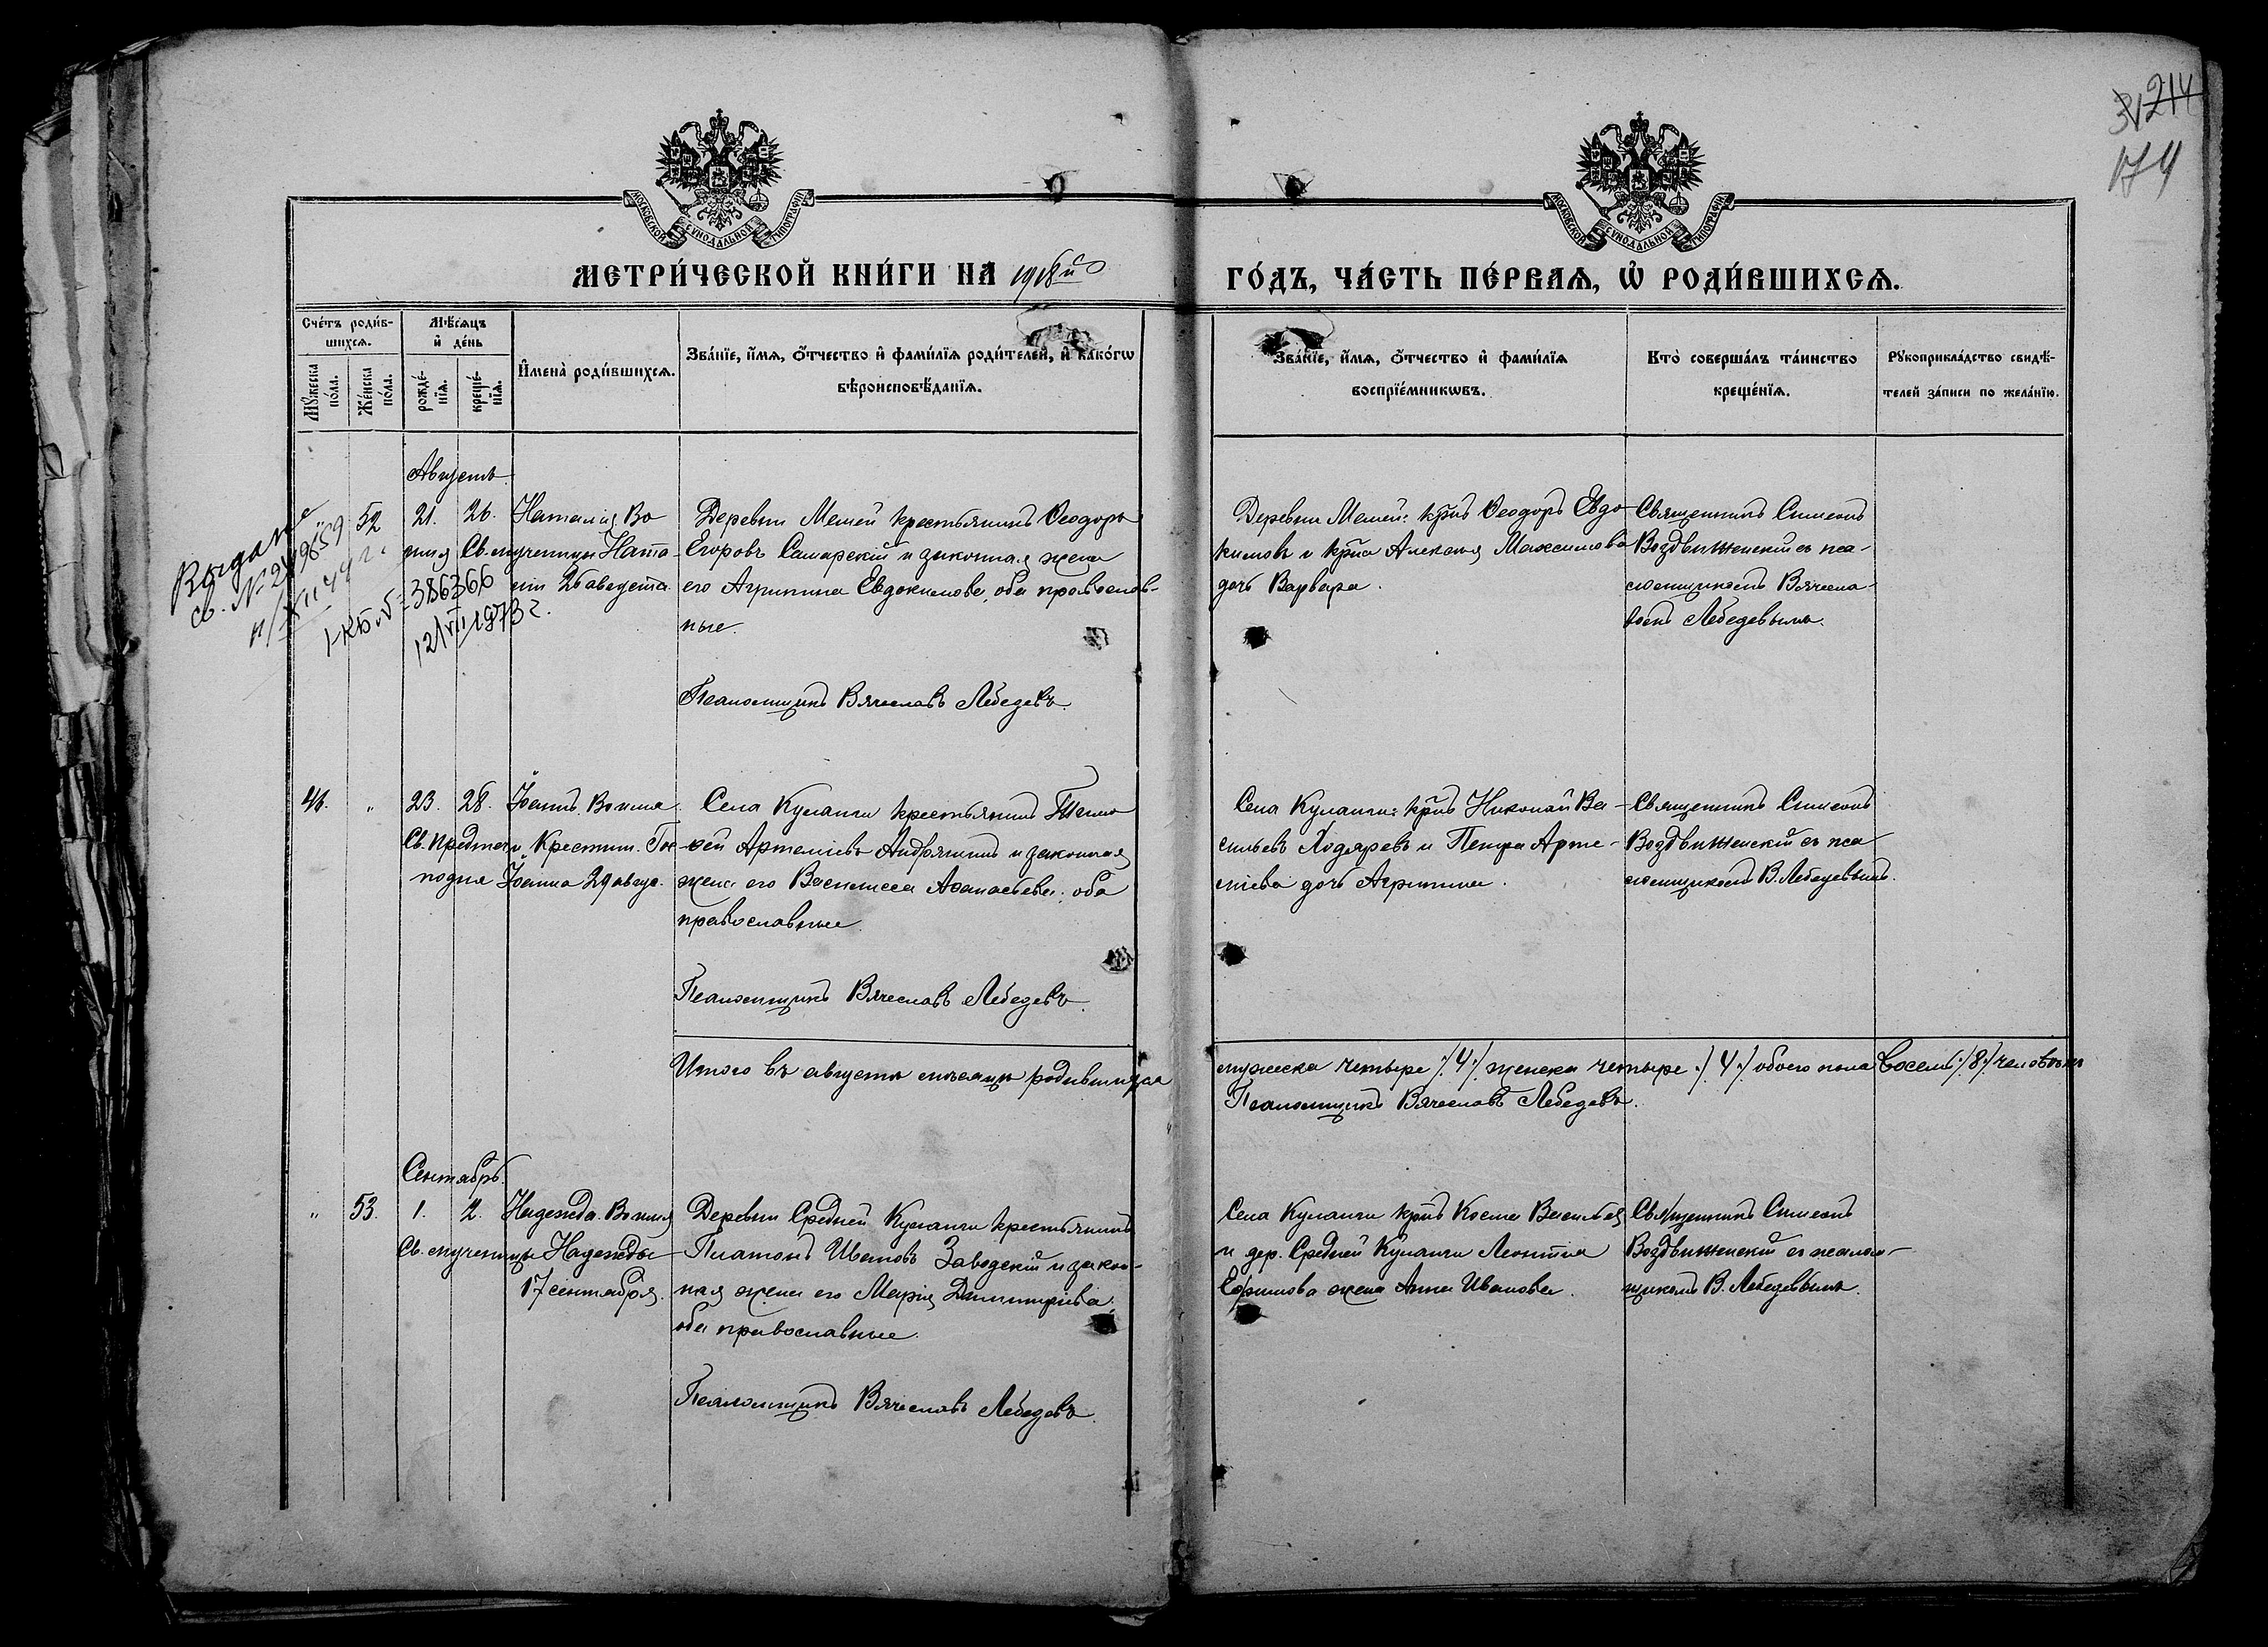 31 214
174
МОСКОВСКОЙ СѴНОДАЛЬНОЙ ТИПОГРАФІИ
МОСКОВСКОЙ СѴНОДАЛЬНОЙ ТИПОГРАФІИ
МЕТРИ́ЧЕСКОЙ КНИ́ГИ НА 1918й
ГО́ДЪ, ЧА́СТЬ ПЕ́РВАѦ, Ѡ҆ РОДИ́ВШИХСѦ.
Сче́тъ роди́в-
шихсѧ.
Мꙋ́жеска по́ла.
Же́нска по́ла.
Мѣ́сѧцъ
и҆ де́нь
рожде́-
нїѧ.
креще́-
нїѧ.
И҆мена̀ роди́вшихсѧ.
Зва́нїе, и҆́мѧ, ѻ҆́тчество и҆ фами́лїѧ роди́телей, и҆ како́гѡ
вѣроисповѣ́данїѧ.
Зва́нїе, и҆́мѧ, ѻ҆́тчество и҆ фами́лїѧ
воспрїе́мникѡвъ.
Кто̀ соверша́лъ та́инство
креще́нїѧ.
Рꙋкоприкла́дство свидѣ́-
телей за́писи по жела́нїю.
Августъ.
52 21. 26. Наталія Во
имя Св. мученицы Ната-
ліи 26 августа.
386366
12/VII 1973 г.
Деревни Мемей крестьянинъ Ѳеодоръ
Егоровъ Самарскій и законная жена
его Агрипина Евдокимова, оба православ-
ные.
Псаломщикъ Вячеславъ Лебедевъ.
Деревни Мемей: кр̃нъ Ѳеодоръ Евдо-
кимовъ и кр̃на Алексѣя Максимова
дочь Варвара.
Священникъ Симеонъ
Воздвиженскій съ пса-
ломщикомъ Вячесла-
вомъ Лебедевымъ.
46. " 23. 28. Іоаннъ. Во имя
Св. Предтечи, Крестит. Гос-
подня Іоанна 29 авгус.
Села Куланги крестьянинъ
Артеміевъ Андрянинъ и законная
жена его Василисса Аѳанасьева, оба
православные.
Псаломщикъ Вячеславъ Лебедевъ.
Села Куланги: кр̃нъ Николай Ва-
сильевъ Ходяревъ и Петра Арте-
міева дочь Агрипина.
Священникъ Симеонъ
Воздвиженскій съ пса
ломщикомъ В. Лебедевымъ.
Итого въ августѣ мѣсяцѣ родившихся
мужеска четыре /.4./ женска четыре /.4./ обоего пола восемь /.8./ человѣкъ
Псаломщикъ Вячеславъ Лебедевъ.
Сентябрь.
" 53. 1. 2. Надежда. Во имя
Св. мученицы Надежды
17 сентября.
Деревни Средней Куланги крестьянинъ
Платонъ Ивановъ Заводскій и закон-
ная жена его Марія Димитріева,
оба православные.
Псаломщикъ Вячеславъ Лебедевъ.
Села Куланги кр̃нъ Косма Васильевъ
и дер. Средней Куланги Леонтія
Ефимова жена Анна Иванова.
Священникъ Симеонъ
Воздвиженскій съ псалом-
щикомъ В. Лебедевымъ.